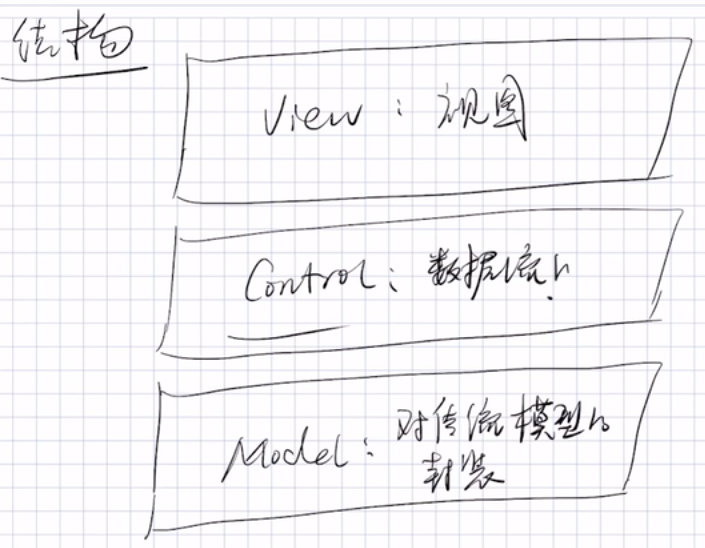 结构
View：视图
Control：数据流
Model：对传统模型的
封装